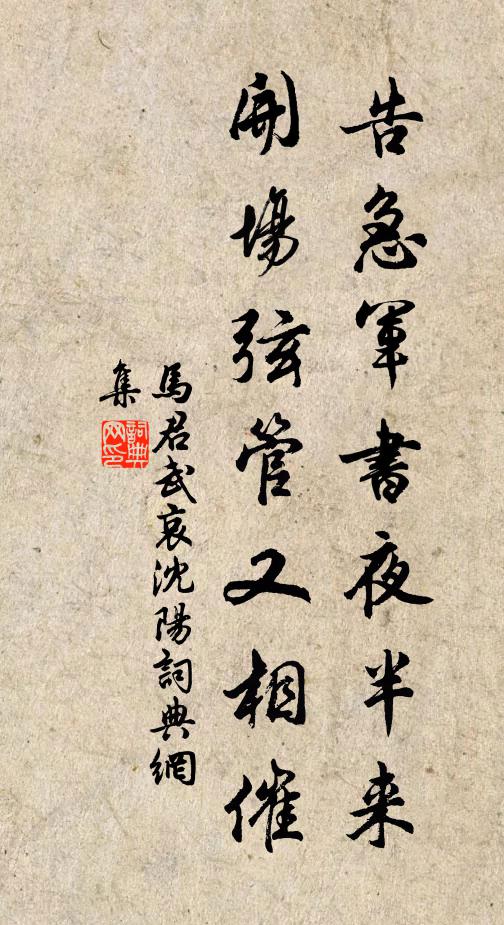 告急軍書夜半来
開場弦管又相催
馬君武哀沈陽詞典網
集
詞典
网印